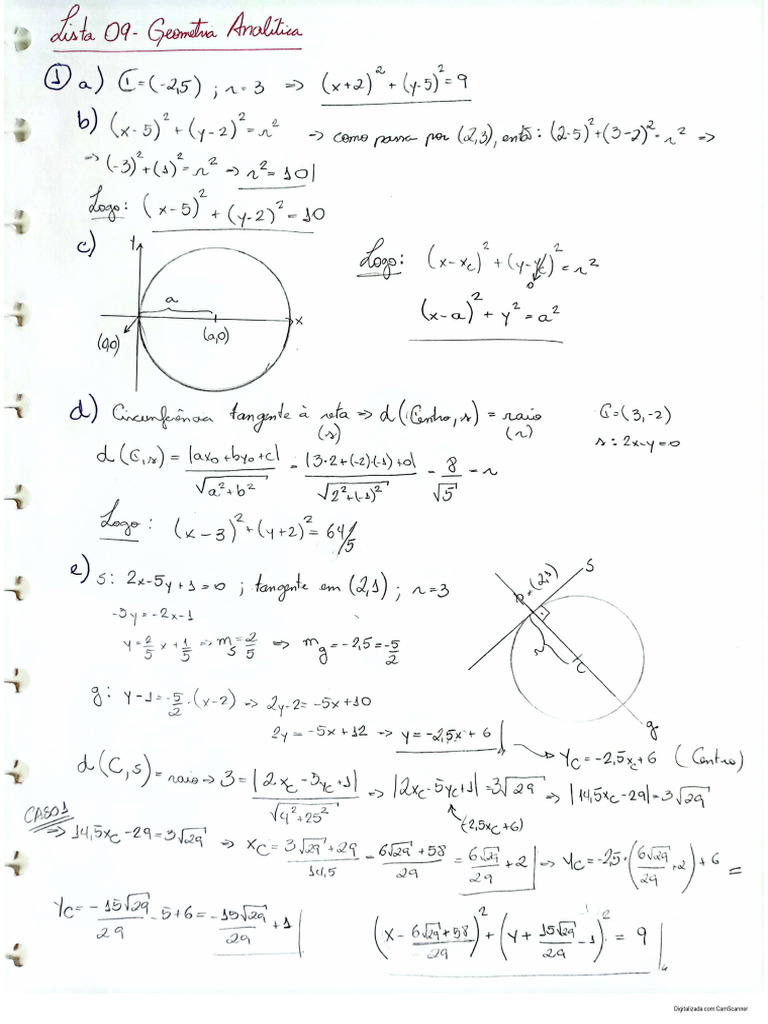 Lista 09 - Geometria Analítica
① a) C=(-2,5) ; r=3 => (x+2)² + (y-5)² = 9
b) (x-5)² + (y-2)² = r² → como passa por (2,3), então: (2-5)² + (3-2)² = r² =>
=> (-3)² + (1)² = r² => r² = 10
Logo: (x-5)² + (y-2)² = 10
c) y
a
x
(0,0)
(a,0)
Logo: (x-xc)² + (y-yc)² = r²
0
(x-a)² + y² = a²
d) Circunferência tangente à reta => d(Centro, s) = raio
(s) (r)
C=(3,-2)
s: 2x-y=0
d(C,s) = |ax0+by0+c|/√(a²+b²) = |3·2+(-2)·(-1)+0|/√(2²+(-1)²) = 8/√5 = r
Logo: (x-3)² + (y+2)² = 64/5
e) s: 2x-5y+1=0 ; tangente em (2,1) ; r=3
-5y=-2x-1
y=2/5 x + 1/5 => ms=2/5 => mg=-2,5=-5/2
P=(2,1)
s
r
C
g
g: y-1=-5/2·(x-2) => 2y-2=-5x+10
2y=-5x+12 => y=-2,5x+6
→ yc=-2,5xc+6 (Centro)
d(C,s) = raio => 3 = |2xc-5yc+1|/√(4²+25²) => |2xc-5yc+1|=3√29 => |14,5xc-29|=3√29
(2,5xc+6)
CASO 1
=> 14,5xc-29=3√29 => xc=(3√29+29)/14,5 = (6√29+58)/29 = 6√29/29 + 2 => yc=-2,5·(6√29/29+2)+6 =
yc=-15√29/29 -5+6 = -15√29/29 + 1
(x - (6√29+58)/29)² + (y + 15√29/29 - 1)² = 9
Digitalizada com CamScanner